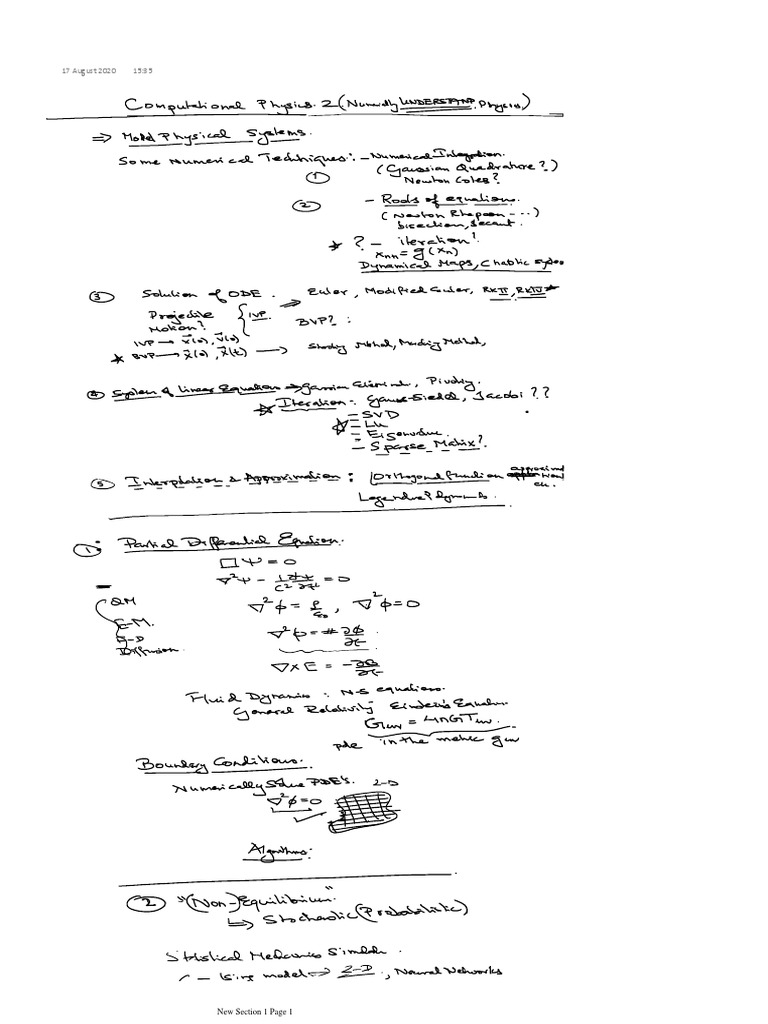 17 August 2020 15:35
Computational Physics. 2 (Numerically UNDERSTAND Physics)
⇒ Model Physical Systems.
Some Numerical Techniques: - Numerical Integration.
① (Gaussian Quadrature?)
Newton Cotes?
② - Roots of equations.
(Newton Rhapson - ...)
bisection, secant.
* ? - iteration!
xₙ₊₁ = g(xₙ)
Dynamical Maps, Chaotic System
③ Solution of ODE. ⇒ Euler, Modified Euler, RKII, RKIV*
Projectile Motion? { IVP
BVP? :
IVP → x⃗(0), v⃗(0)
* BVP → x⃗(0), x⃗(t) → Shooting Method, Marching Method,
④ System of Linear Equation → Gaussian Elimin, Pivoting.
* Iteration:- Gauss-Siedel, Jacobi??
- SVD
* - LU
- Eigenvalue.
- Sparse Matrix?
⑤ Interpolation & Approximation: Orthogonal Function approximation
Legendre Polynomials.
①: Partial Differential Equation.
□Ψ = 0
∇²Ψ - 1/c² ∂²Ψ/∂t² = 0
QM
∇²φ = ρ/ε₀, ∇²φ = 0
E-M.
∇²φ = # ∂φ/∂t
Diffusion
∇×E = -∂B/∂t
Fluid Dynamics: N-S equations.
General Relativity Einstein's Equation.
Gμν = 4πGTμν
pde in the metric gμν
Boundary Conditions.
Numerically Solve PDE's. 2-D
∇²φ = 0
Algorithms:
② "(Non-)Equilibrium"
↳ Stochastic (Probabilistic)
Statistical Mechanics Simulation.
- Ising model ⇒ 2-D, Neural Networks
New Section 1 Page 1